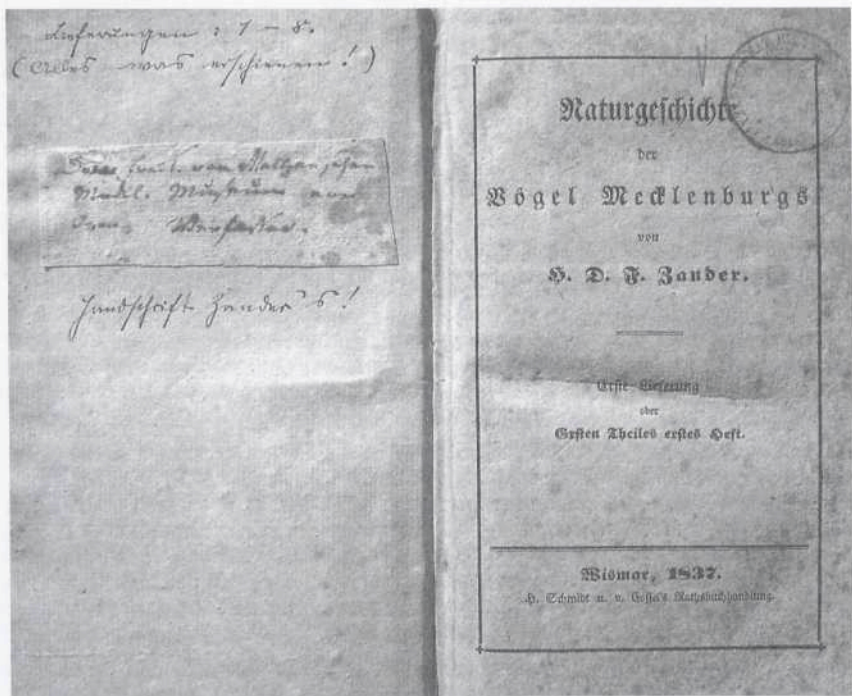 Lieferungen: 1 – 8.
(Alles was erschienen!)
Frei. von Maltzan
Meckl. Museum
dem Verfasser.
Handschrift Zander's!
Naturgeschichte
der
Vögel Mecklenburgs
von
H. D. F. Zander.
Erste Lieferung
oder
Ersten Theiles erstes Heft.
Wismar, 1837.
H. Schmidt u. v. Cossel's Rathsbuchhandlung.